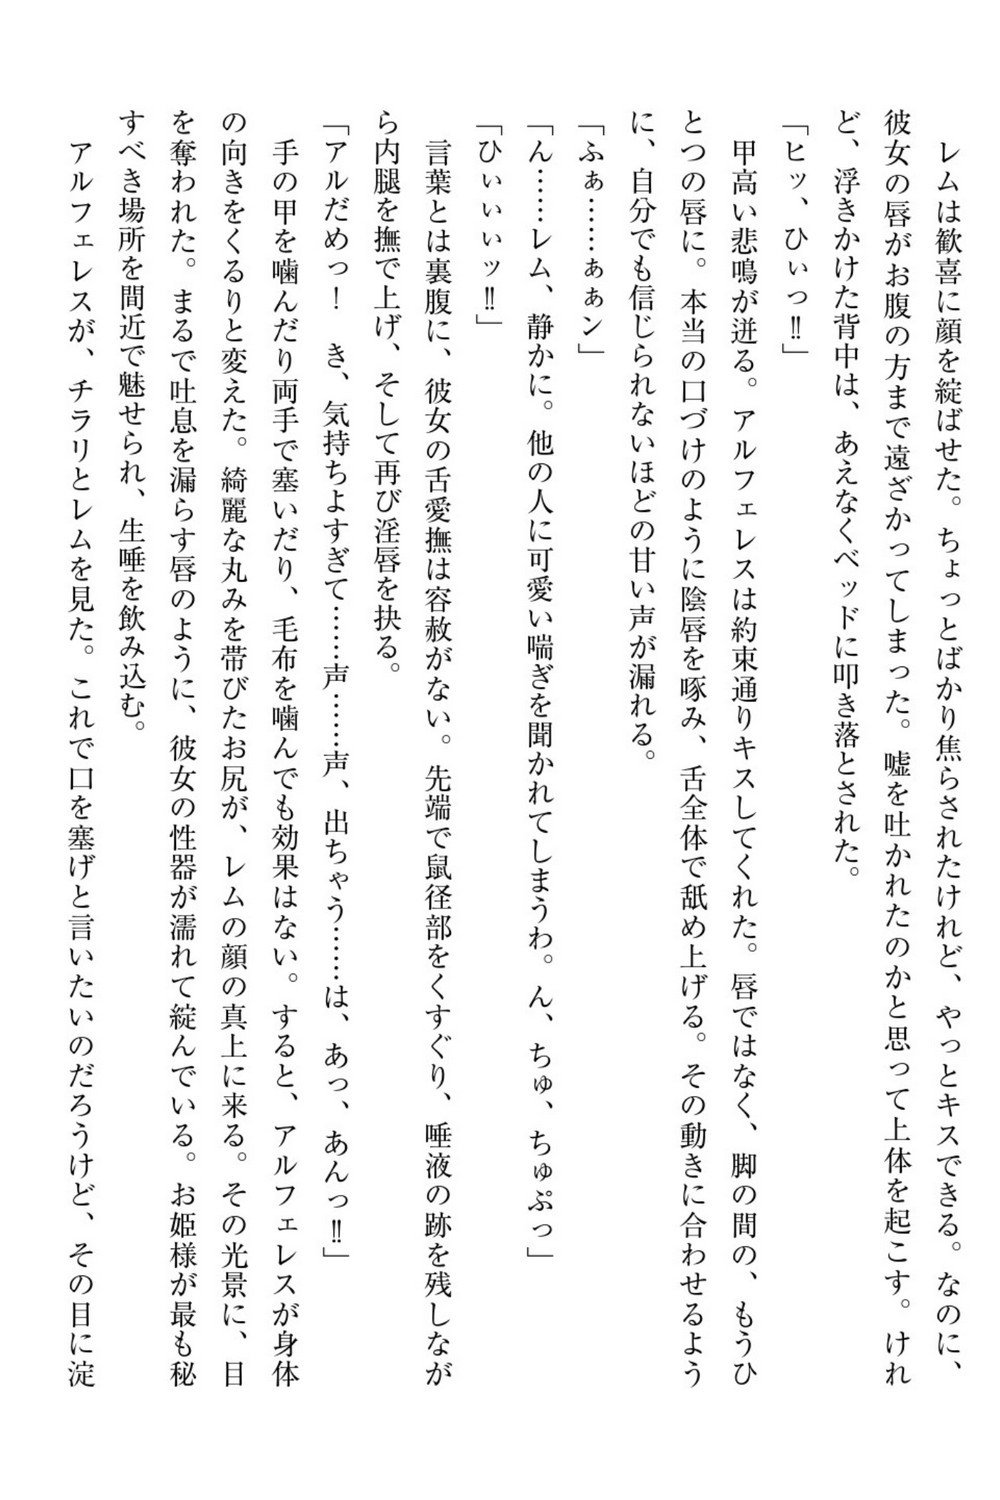 レムは歓喜に顔を綻ばせた。ちょっとばかり焦らされたけれど、やっとキスできる。なのに、
彼女の唇がお腹の方まで遠ざかってしまった。嘘を吐かれたのかと思って上体を起こす。けれ
ど、浮きかけた背中は、あえなくベッドに叩き落とされた。
「ヒッ、ひぃっ‼」
　甲高い悲鳴が迸る。アルフェレスは約束通りキスしてくれた。唇ではなく、脚の間の、もうひ
とつの唇に。本当の口づけのように陰唇を啄み、舌全体で舐め上げる。その動きに合わせるよう
に、自分でも信じられないほどの甘い声が漏れる。
「ふぁ……ぁぁン」
「ん……レム、静かに。他の人に可愛い喘ぎを聞かれてしまうわ。ん、ちゅ、ちゅぷっ」
「ひぃぃぃッ‼」
　言葉とは裏腹に、彼女の舌愛撫は容赦がない。先端で鼠径部をくすぐり、唾液の跡を残しなが
ら内腿を撫で上げ、そして再び淫唇を抉る。
「アルだめっ！　き、気持ちよすぎて……声……声、出ちゃう……は、あっ、あんっ‼」
　手の甲を噛んだり両手で塞いだり、毛布を噛んでも効果はない。すると、アルフェレスが身体
の向きをくるりと変えた。綺麗な丸みを帯びたお尻が、レムの顔の真上に来る。その光景に、目
を奪われた。まるで吐息を漏らす唇のように、彼女の性器が濡れて綻んでいる。お姫様が最も秘
すべき場所を間近で魅せられ、生唾を飲み込む。
　アルフェレスが、チラリとレムを見た。これで口を塞げと言いたいのだろうけど、その目に淀